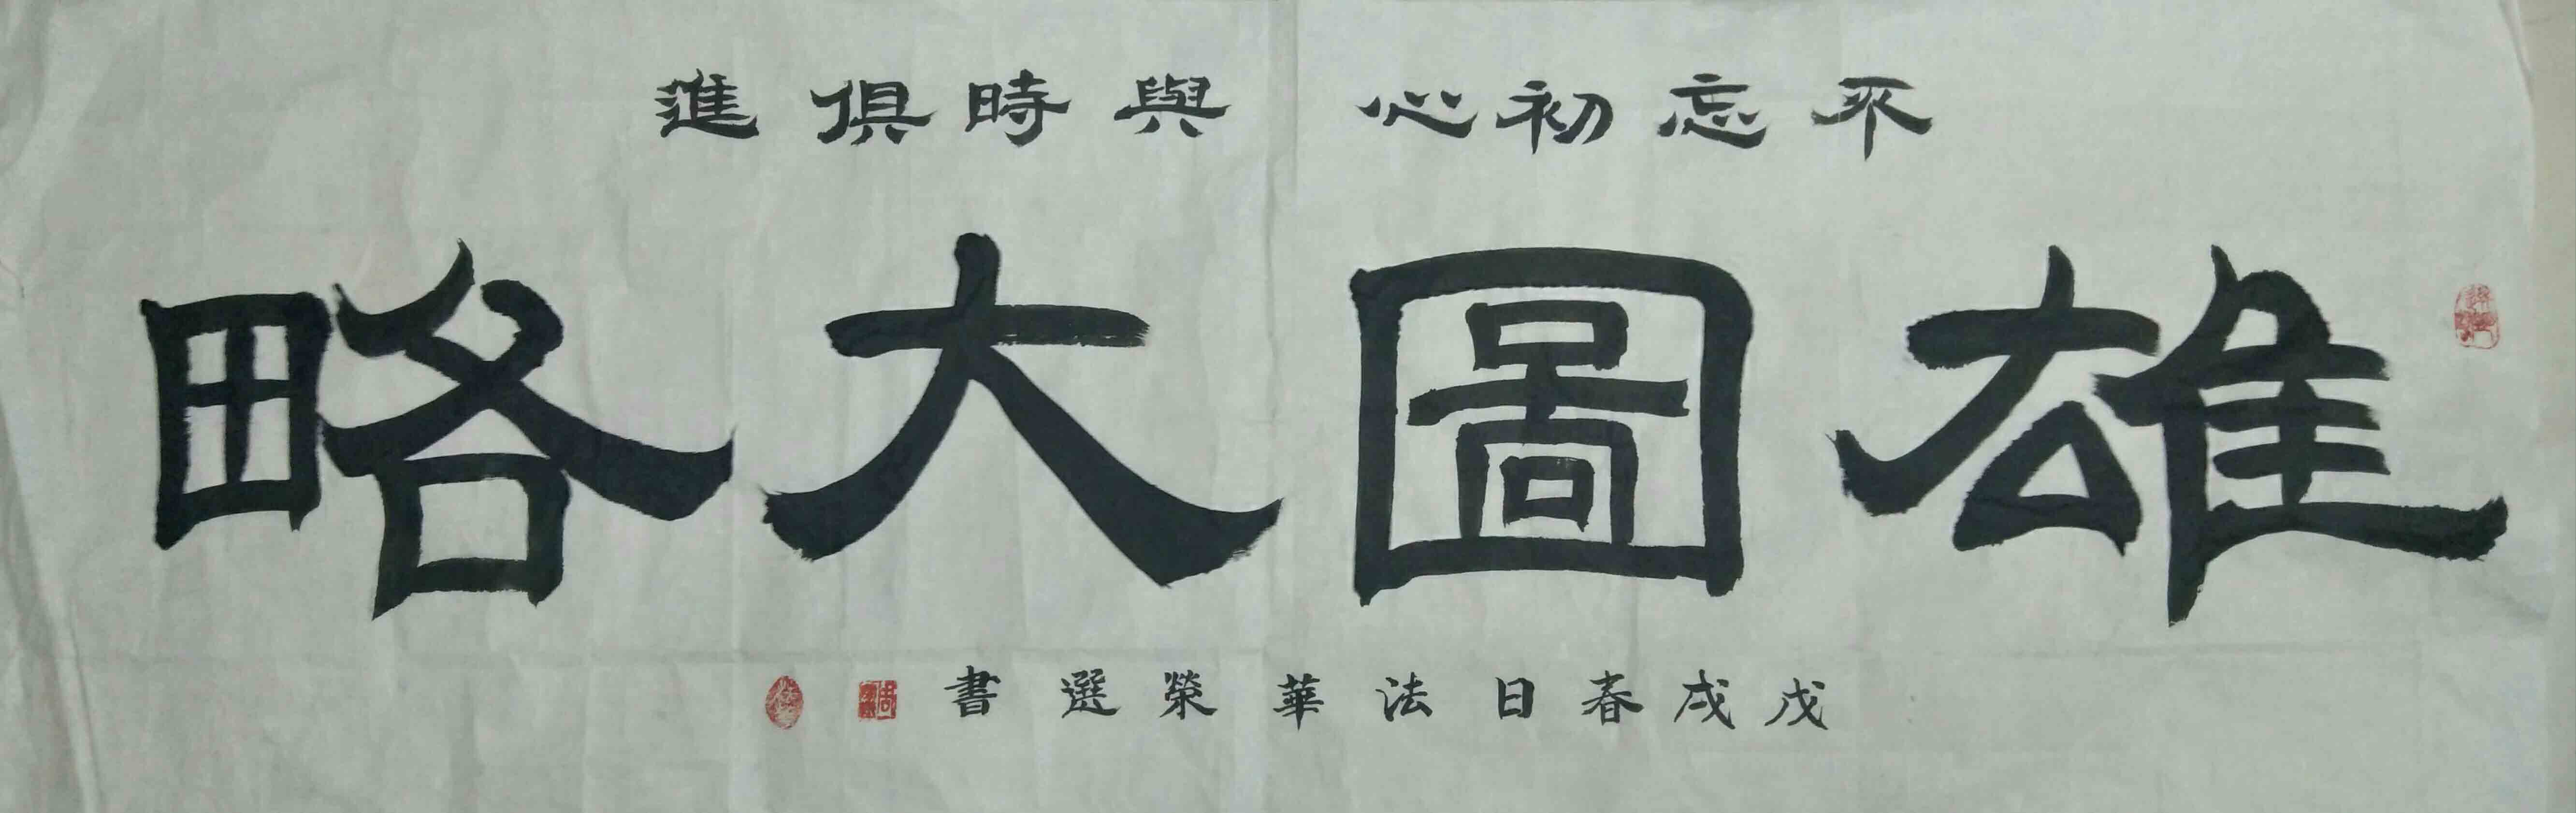 不忘初心 與時俱進
雄圖大略
戊戌春日法華榮選書